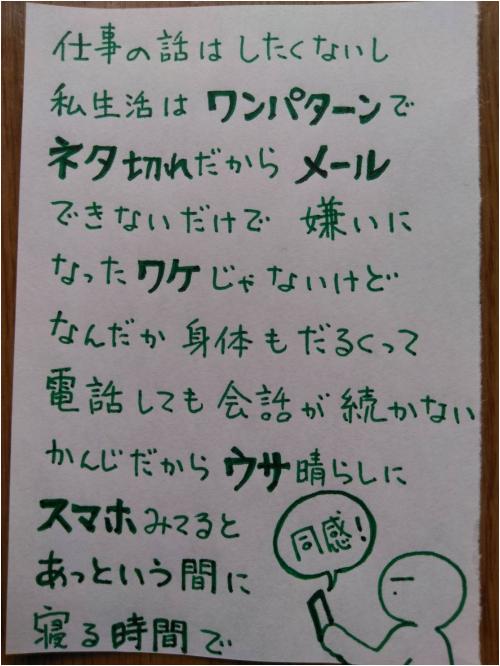 仕事の話はしたくないし
私生活はワンパターンで
ネタ切れだからメール
できないだけで 嫌いに
なったワケじゃないけど
なんだか身体もだるくって
電話しても会話が続かない
かんじだからウサ晴らしに
スマホみてると
あっという間に
寝る時間で
同感!